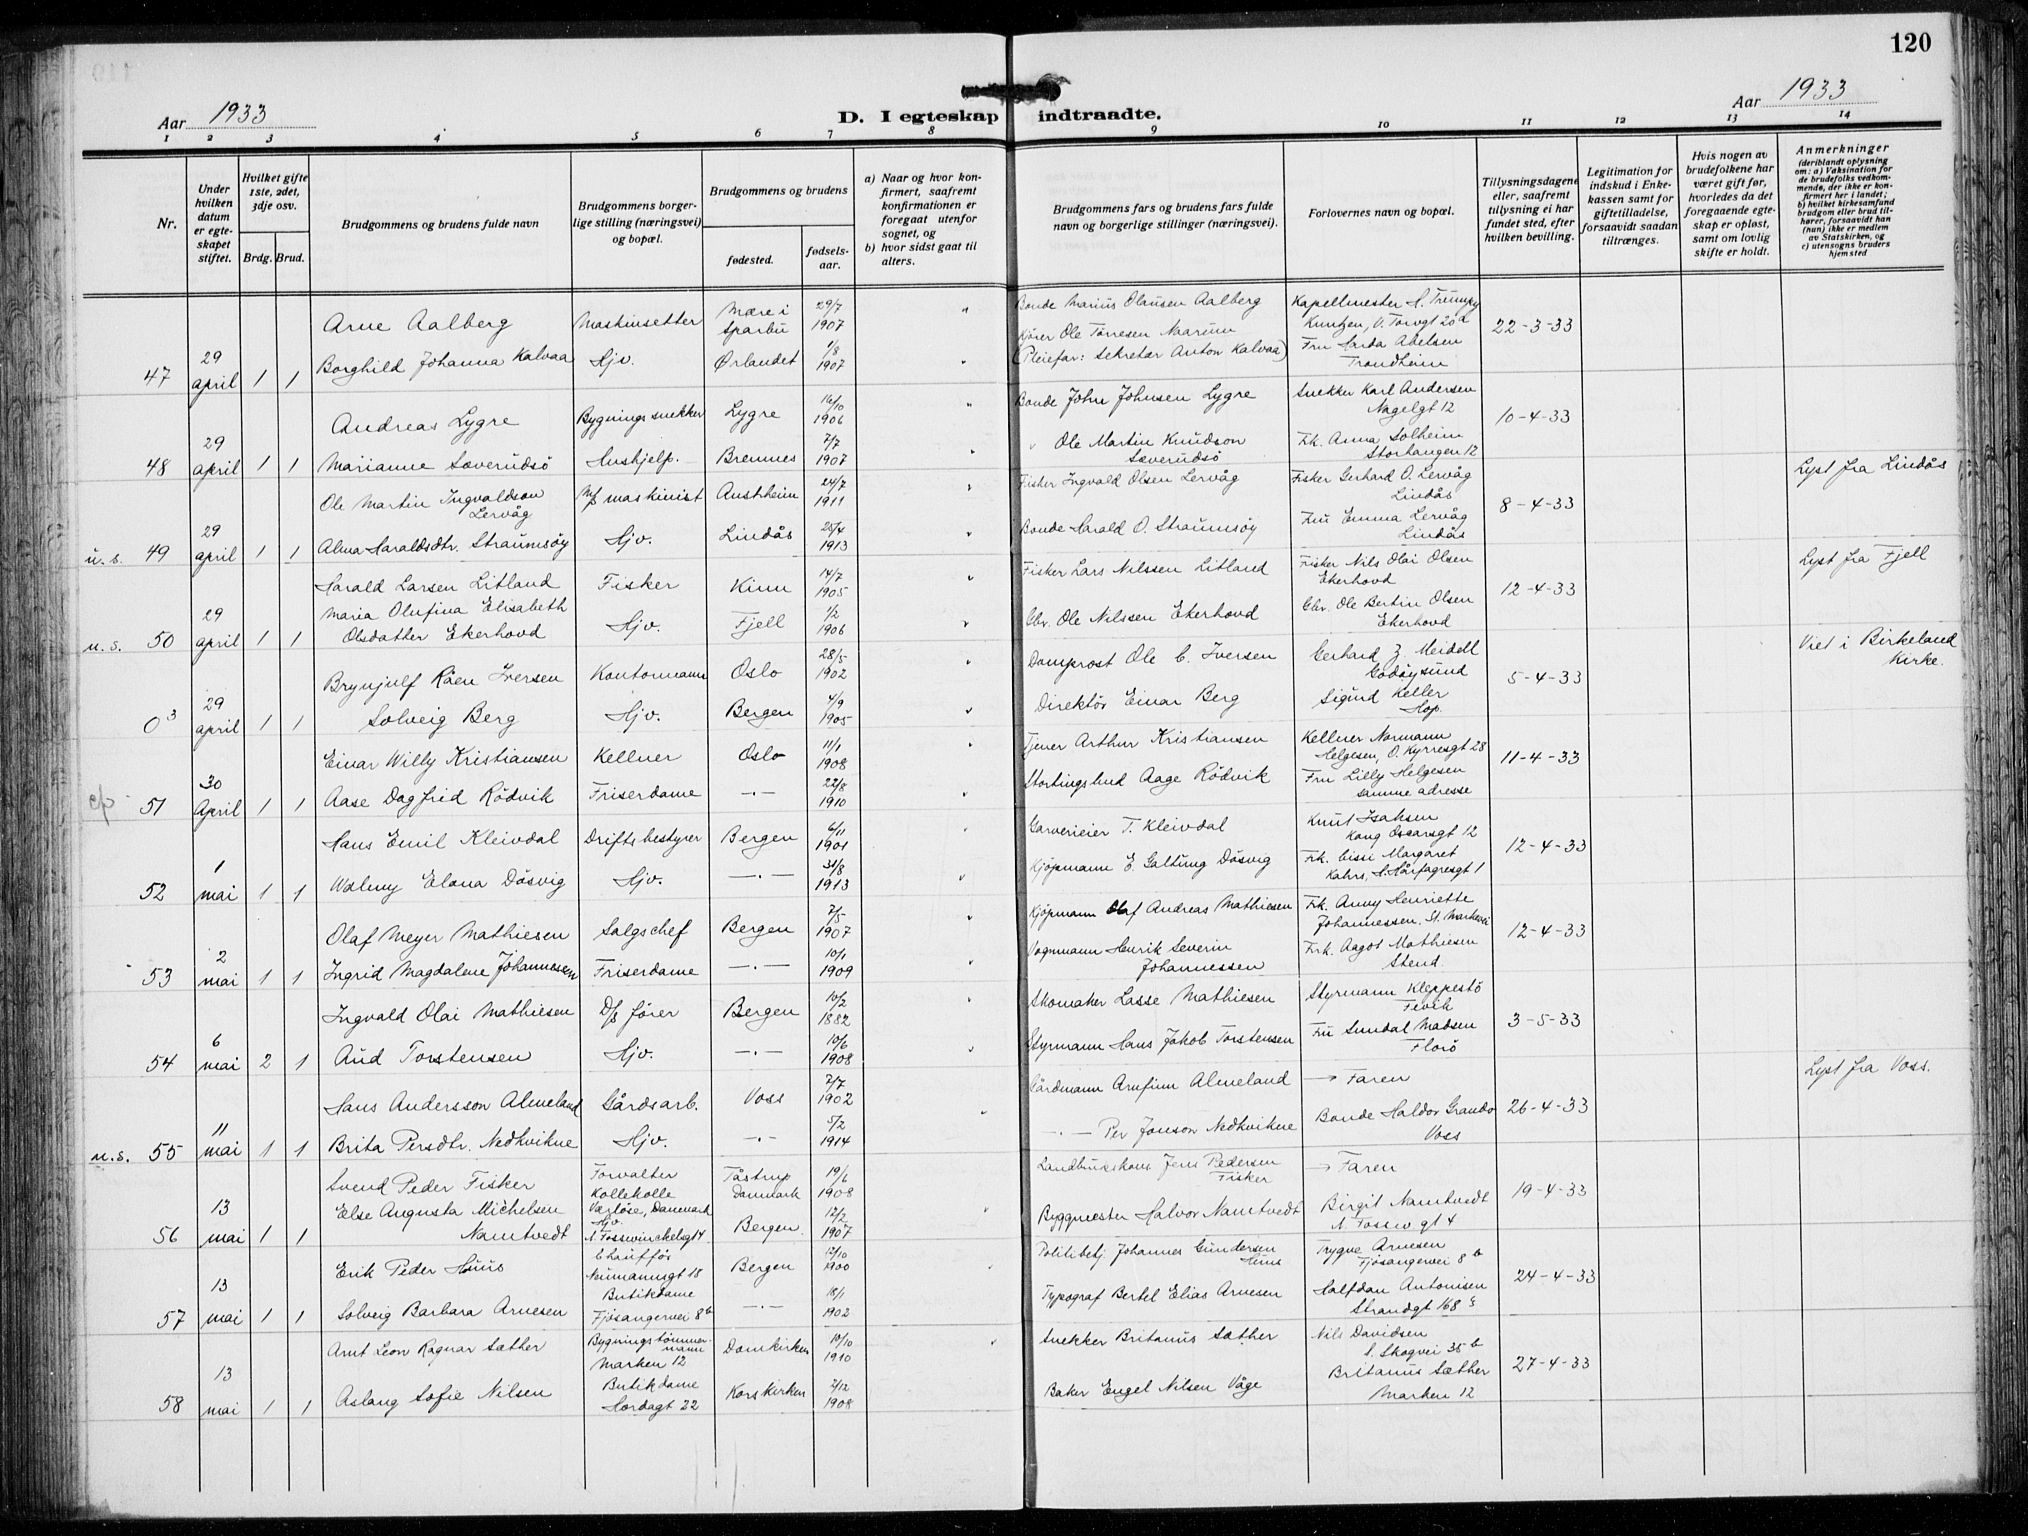 120
Aar 1933
D. I egteskap indtraadte.
Aar 1933
1 2 3 4 5 6 7 8 9 10 11 12 13 14
Nr.
Under hvilken datum er egteskapet stiftet.
Hvilket gifte 1ste, 2det, 3dje osv.
Brdg. Brud.
Brudgommens og brudens fulde navn
Brudgommens borgerlige stilling (næringsvei) og bopæl.
Brudgommens og brudens
fødested.
fødselsaar.
a) Naar og hvor konfirmert, saafremt konfirmationen er foregaat utenfor sognet, og
b) hvor sidst gaat til alters.
Brudgommens fars og brudens fars fulde navn og borgerlige stillinger (næringsvei).
Forlovernes navn og bopæl.
Tillysningsdagene eller, saafremt tillysning ei har fundet sted, efter hvilken bevilling.
Legitimation for indskud i Enkekassen samt for giftetilladelse, forsaavidt saadan tiltrænges.
Hvis nogen av brudefolkene har været gift før, hvorledes da det foregaaende egteskap er opløst, samt om lovlig skifte er holdt.
Anmerkninger
(deriblandt oplysning om: a) Vaksination for de brudefolks vedkommende, der ikke er konfirmert her i landet; b) hvilket kirkesamfund brudgom eller brud tilhører, forsaavidt han (hun) ikke er medlem av Statskirken, og c) utensogns bruders hjemsted
47 29 april 1 1
Arne Aalberg Maskinsetter Mære i Sparbu 29/7 1907 Bonde Marius Olausen Aalberg Kapellmester H. Trumpy Kuntzen, V. Torvgt 20a 22-3-33
Borghild Johanna Kalvaa Hjv. Ørlandet 1/8 1907 Kjører Ole Tørresen Naarum (Pleiefar: Sekretær Anton Kalvaa) Fru Harda Abelsen Trondheim
48 29 april 1 1
Andreas Lygre Bygningssnekker Lygre 16/10 1906 Bonde John Johnsen Lygre Snekker Karl Andersen Nagelgt 12 10-4-33
Marianne Sæverudsø Hushjelp. Bremnes 7/7 1907 " Ole Martin Knudson Sæverudsø Frk. Anna Solheim Storhaugen 12
u.s. 49 29 april 1 1
Ole Martin Ingvaldson Lervåg M/s maskinist Austrheim 24/7 1911 Fisker Ingvald Olsen Lervåg Fisker Gerhard O. Lervåg Lindås 8-4-33 Lyst fra Lindås
Alma Haraldsdtr. Straumsøy Hjv. Lindås 25/4 1913 Bonde Harald O. Straumsøy Fru Emma Lervåg Lindås
u.s. 50 29 april 1 1
Harald Larsen Litland Fisker Kinn 14/7 1905 Fisker Lars Nilssen Litland Fisker Nils Olai Olsen Ekerhovd 12-4-33 Lyst fra Fjell
Maria Olufina Elisabeth Olsdatter Ekerhovd Hjv. Fjell 1/2 1906 Gbr. Ole Nilssen Ekerhovd Gbr. Ole Bertin Olsen Ekerhovd
0 3 29 april 1 1
Brynjulf Råen Iversen Kontormann Oslo 28/5 1902 Domprost Ole C. Iversen Gerhard Z. Meidell Godøysund 5-4-33 Viet i Birkeland Kirke.
Solveig Berg Hjv. Bergen 4/9 1905 Direktör Einar Berg Sigurd Keller Hop.
51 30 April 1 1
Einar Willy Kristiansen Kellner Oslo 11/1 1908 Tjener Arthur Kristiansen Kellner Normann Helgesen, O. Kyrresgt 28 11-4-33
Aase Dagfrid Rödvik Friserdame —·— 22/8 1910 Stortingsbud Aage Rödvik Fru Lilly Helgesen samme adresse
52 1 mai 1 1
Hans Emil Kleivdal Driftsbestyrer Bergen 6/11 1901 Garverieier T. Kleivdal Knut Isaksen Kong Oscarsgt 12 12-4-33
Walmy Elana Døsvig Hjv. —·— 31/8 1913 Kjöpmann E. Galtung Døsvig Frk. Cissi Margaret Kahrs, H. Hårfagresgt 1
53 2 mai 1 1
Olaf Meyer Mathiesen Salgschef Bergen 7/5 1907 Kjöpmann Olaf Andreas Mathiesen Frk. Anny Henriette Johannessen. St. Markevei 12-4-33
Ingrid Magdalene Johannessen Friserdame —·— 10/1 1909 Vognmann Henrik Severin Johannessen Frk. Aagot Mathiesen Stend.
54 6 mai 2 1
Ingvald Olai Mathiesen D/s fører Bergen 10/2 1882 Skomaker Lasse Mathiesen Styrmann Kleppestö Fevik 3-5-33
Aud Torstensen Hjv. —·— 10/6 1908 Styrmann Hans Jakob Torstensen Fru Sundal Madsen Florö
u.s. 55 11 mai 1 1
Hans Andersson Almeland Gårdsarb. Voss 7/7 1902 Gårdmann Arnfinn Almeland → Faren 26-4-33 Lyst fra Voss.
Brita Persdtr. Nedkvikne Hjv. —·— 5/2 1914 —·— Per Jonson Nedkvikne Bonde Haldor Grande Voss
56 13 mai 1 1
Svend Peder Fisker Forvalter Kollekolle Værløse, Danmark Tåstrup Danmark 19/6 1908 Jens Pedersen Fisker → Faren 19-4-33
Else Augusta Michelsen Namtvedt Hjv. N. Fosswinckelsgt 4 Bergen 12/2 1907 Byggmester Halvor Namtvedt Birgit Namtvedt
57 13 mai 1 1
Erik Peder Huus Chauffør Neumannsgt 18 Bergen 12/10 1900 Politibetj. Johannes Gundersen Huus Trygve Arnesen Fjøsangervei 8b 24-4-33
Solveig Barbara Arnesen Butikdame Fjøsangervei 8b —·— 18/1 1902 Typograf Bertel Elias Arnesen Halfdan Antonisen Strandgt 168
58 13 mai 1 1
Arnt Leon Ragnar Sæther Bygningstömmermann Marken 12 Domkirken 10/10 1910 Snekker Britanus Sæther Nils Davidsen S. Skogvei 35b 27-4-33
Aslaug Sofie Nilsen Butikdame Hordagt 22 Korskirken 2/12 1908 Baker Engel Nilsen Våge Britanus Sæther Marken 12